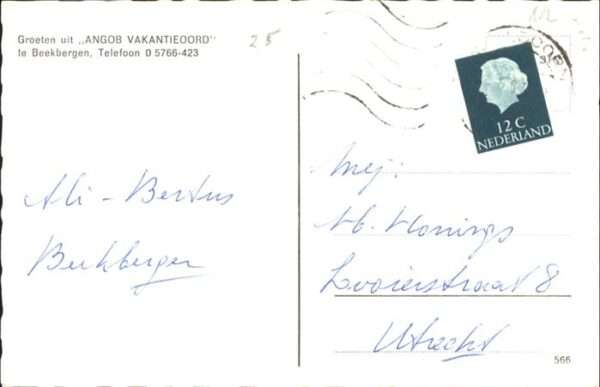 Groeten uit „ANGOB VAKANTIEOORD"
te Beekbergen, Telefoon 0 5766-423
25
Ali - Bertus
Beekbergen
12 C
NEDERLAND
Mej:
Utrecht
566